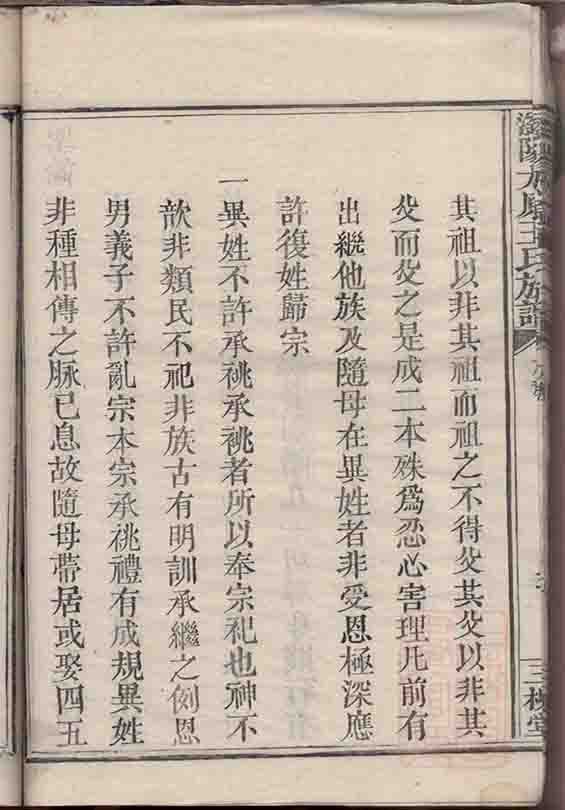 其祖以非其祖而祖之不得父其父以非其
父而父之是成二本殊爲忍心害理凡前有
出繼他族及隨母在異姓者非受恩極深應
許復姓歸宗
一異姓不許承祧承祧者所以奉宗祀也神不
歆非類民不祀非族古有明訓承繼之例恩
男義子不許亂宗本宗承祧禮有成規異姓
非種相傳之脉已息故隨母帶居或娶四五
王氏族譜
三槐堂